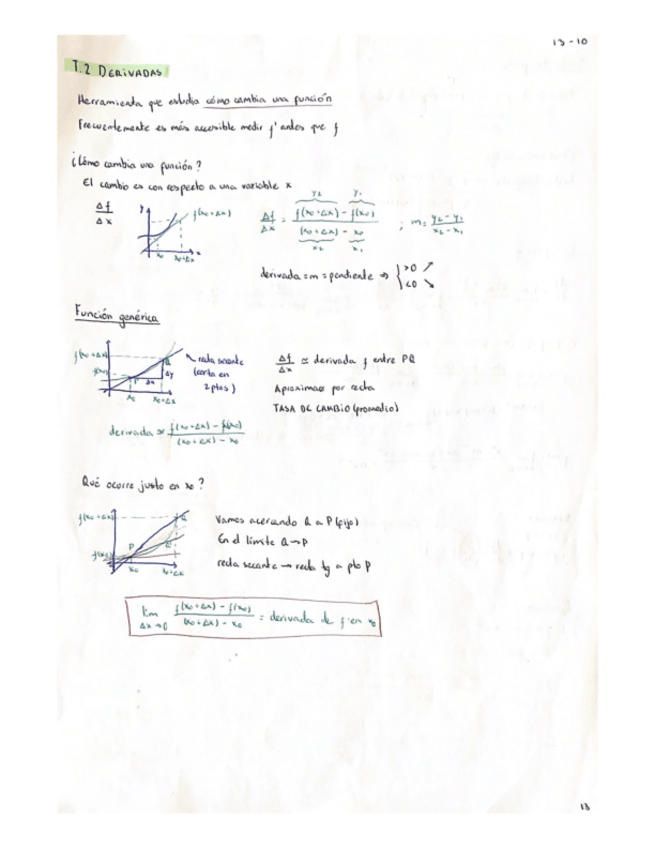 13-10
T.2 DERIVADAS
Herramienta que estudia cómo cambia una función
Frecuentemente es más accesible medir f' antes que f
¿Cómo cambia una función?
El cambio es con respecto a una variable x
y₂ y₁
Δf/Δx y f(x₀+Δx) Δf/Δx = (f(x₀+Δx) - f(x₀))/((x₀+Δx) - x₀) ; m = (y₂-y₁)/(x₂-x₁)
x₀ x₀+Δx x x₂ x₁
derivada = m = pendiente ⇒ { >0 ↗
<0 ↘
Función genérica
f(x₀+Δx) Q recta secante Δf/Δx ≃ derivada f entre PQ
f(x₀) P Δx Δy (corta en Aproximamos por recta
x₀ x₀+Δx 2 ptos) TASA DE CAMBIO (promedio)
derivada ≃ (f(x₀+Δx) - f(x₀))/((x₀+Δx) - x₀)
Qué ocurre justo en x₀?
f(x₀+Δx) Q Vamos acercando Q a P (fijo)
P Q' En el límite Q→P
f(x₀) x₀ x₀+Δx recta secante → recta tg a pto P
lim Δx→0 (f(x₀+Δx) - f(x₀))/((x₀+Δx) - x₀) = derivada de f en x₀
13